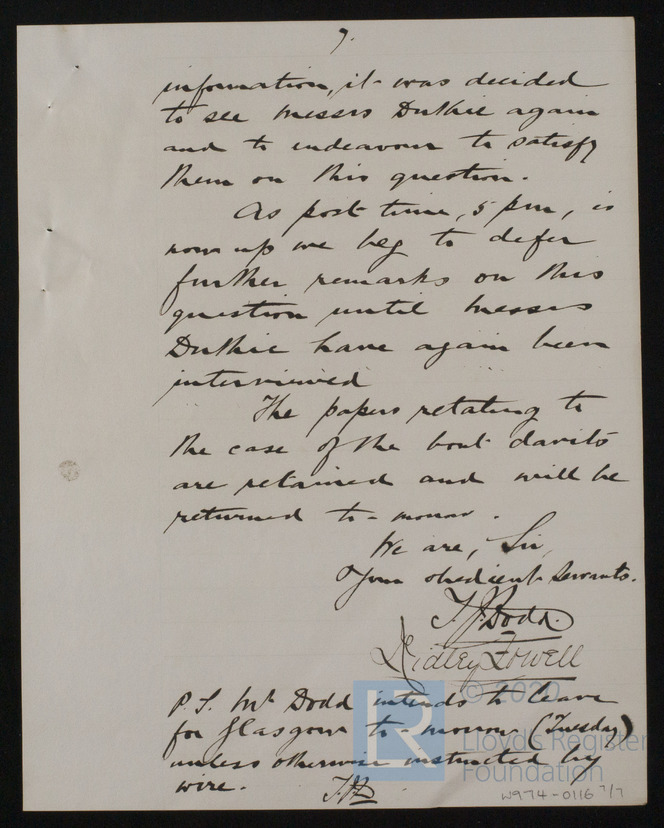 7.
information, it was decided
to see Messrs Duthie again
and to endeavour to satisfy
them on this question.
As post time, 5 pm, is
now up we beg to defer
further remarks on this
question until Messrs
Duthie have again been
interviewed
The papers relating to
the case of the boat davits
are retained and will be
returned to-morrow.
We are, Sir,
Your obedient Servants.
Dodd.
Ridley
P.S. Mr Dodd intends to leave
for Glasgow to morrow (Tuesday)
unless otherwise instructed by
wire.
© 2020
LR
Lloyd's Register
Foundation
W974-0116 7/7